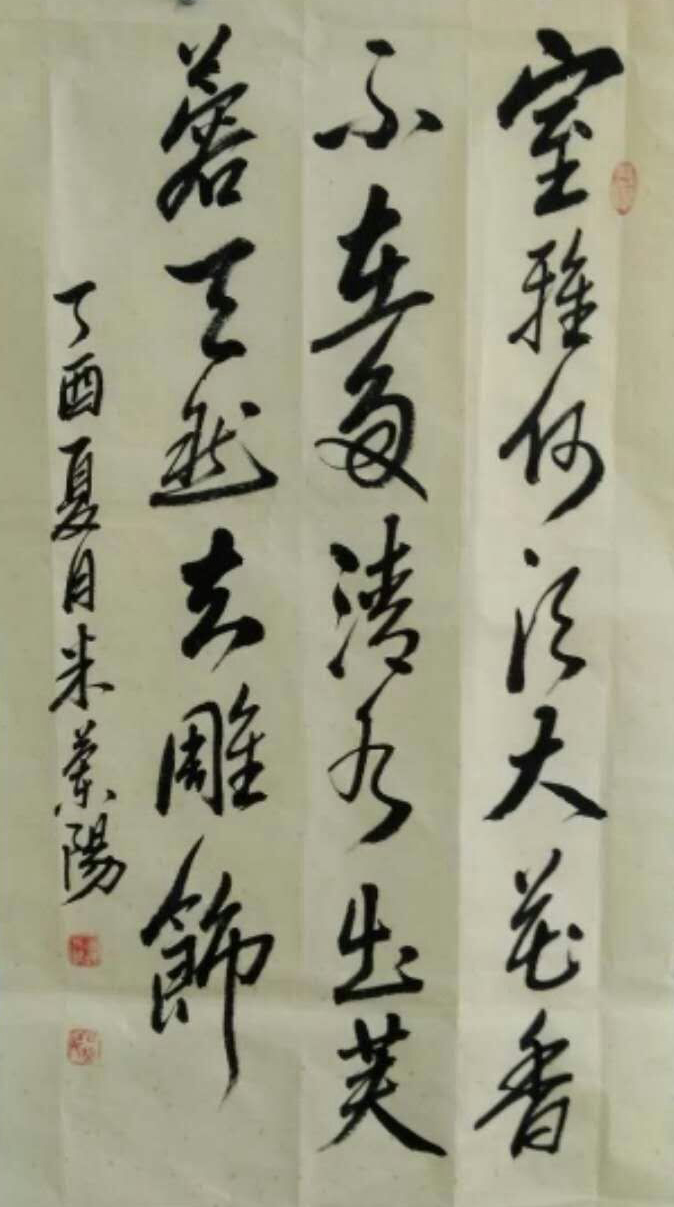 室雅何须大花香
不在多清水出芙
蓉天然去雕飾
丁酉夏月米蘭陽